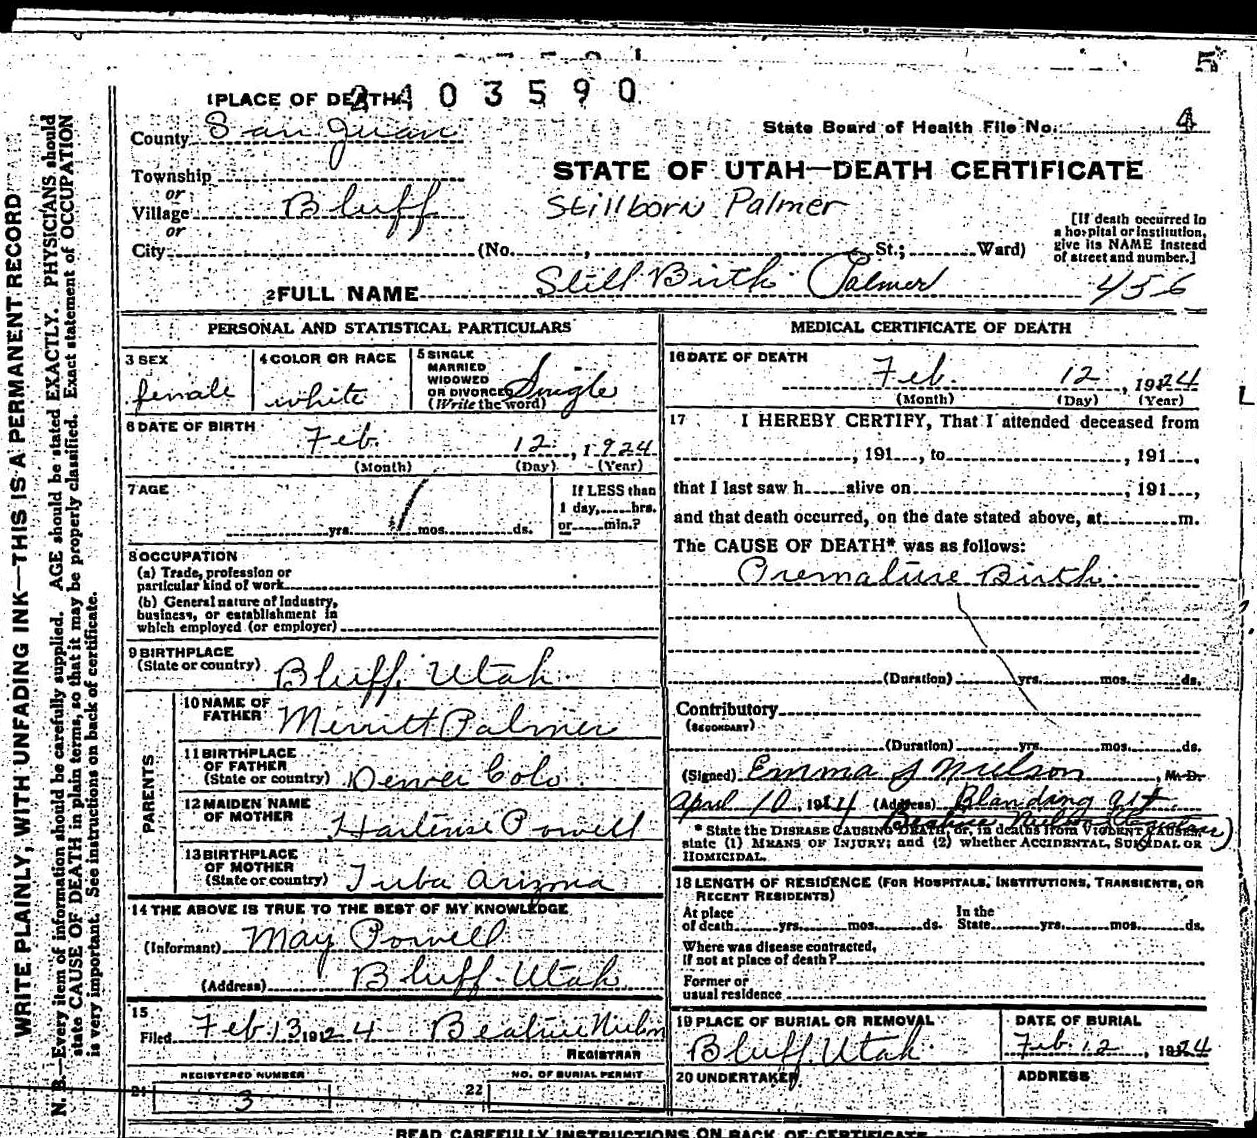 5
2403590
1 PLACE OF DEATH
County San Juan
State Board of Health File No. 4
Township
or
Village Bluff
or
City (No. , St.; Ward)
STATE OF UTAH—DEATH CERTIFICATE
Stillborn Palmer
[If death occurred in
a hospital or institution,
give its NAME instead
of street and number.]
2 FULL NAME Still Birth Palmer 456
PERSONAL AND STATISTICAL PARTICULARS
3 SEX
female
4 COLOR OR RACE
white
5 SINGLE
MARRIED
WIDOWED
OR DIVORCED
(Write the word)
Single
6 DATE OF BIRTH
Feb. 12, 1924
(Month) (Day) (Year)
7 AGE
yrs. mos. ds.
If LESS than
1 day, hrs.
or min.?
8 OCCUPATION
(a) Trade, profession or
particular kind of work
(b) General nature of industry,
business, or establishment in
which employed (or employer)
9 BIRTHPLACE
(State or country) Bluff, Utah.
PARENTS
10 NAME OF
FATHER Merritt Palmer
11 BIRTHPLACE
OF FATHER
(State or country) Denver Colo.
12 MAIDEN NAME
OF MOTHER Hartense Powell
13 BIRTHPLACE
OF MOTHER
(State or country) Tuba Arizona
14 THE ABOVE IS TRUE TO THE BEST OF MY KNOWLEDGE
(Informant) May Powell
(Address) Bluff Utah
15
Filed Feb 13, 1924 Beatrice Nielson
REGISTRAR
REGISTERED NUMBER
21 3
NO. OF BURIAL PERMIT
22
MEDICAL CERTIFICATE OF DEATH
16 DATE OF DEATH
Feb. 12, 1924
(Month) (Day) (Year)
17 I HEREBY CERTIFY, That I attended deceased from
, 191 , to , 191 ,
that I last saw h alive on , 191 ,
and that death occurred, on the date stated above, at m.
The CAUSE OF DEATH* was as follows:
Premature Birth.
(Duration) yrs. mos. ds.
Contributory
(SECONDARY)
(Duration) yrs. mos. ds.
(Signed) Emma J Nielson, M. D.
April 10, 1924 (Address) Blanding Ut
Beatrice Nielson Registrar)
* State the DISEASE CAUSING DEATH, or, in deaths from VIOLENT CAUSES,
state (1) MEANS OF INJURY; and (2) whether ACCIDENTAL, SUICIDAL OR
HOMICIDAL.
18 LENGTH OF RESIDENCE (FOR HOSPITALS, INSTITUTIONS, TRANSIENTS, OR
RECENT RESIDENTS)
At place
of death yrs. mos. ds.
In the
State yrs. mos. ds.
Where was disease contracted,
if not at place of death?
Former or
usual residence
19 PLACE OF BURIAL OR REMOVAL
Bluff Utah
DATE OF BURIAL
Feb. 12, 1924
20 UNDERTAKER
ADDRESS
READ CAREFULLY INSTRUCTIONS ON BACK OF CERTIFICATE
WRITE PLAINLY, WITH UNFADING INK—THIS IS A PERMANENT RECORD
N. B.—Every item of information should be carefully supplied. AGE should be stated EXACTLY. PHYSICIANS should
state CAUSE OF DEATH in plain terms, so that it may be properly classified. Exact statement of OCCUPATION
is very important. See instructions on back of certificate.